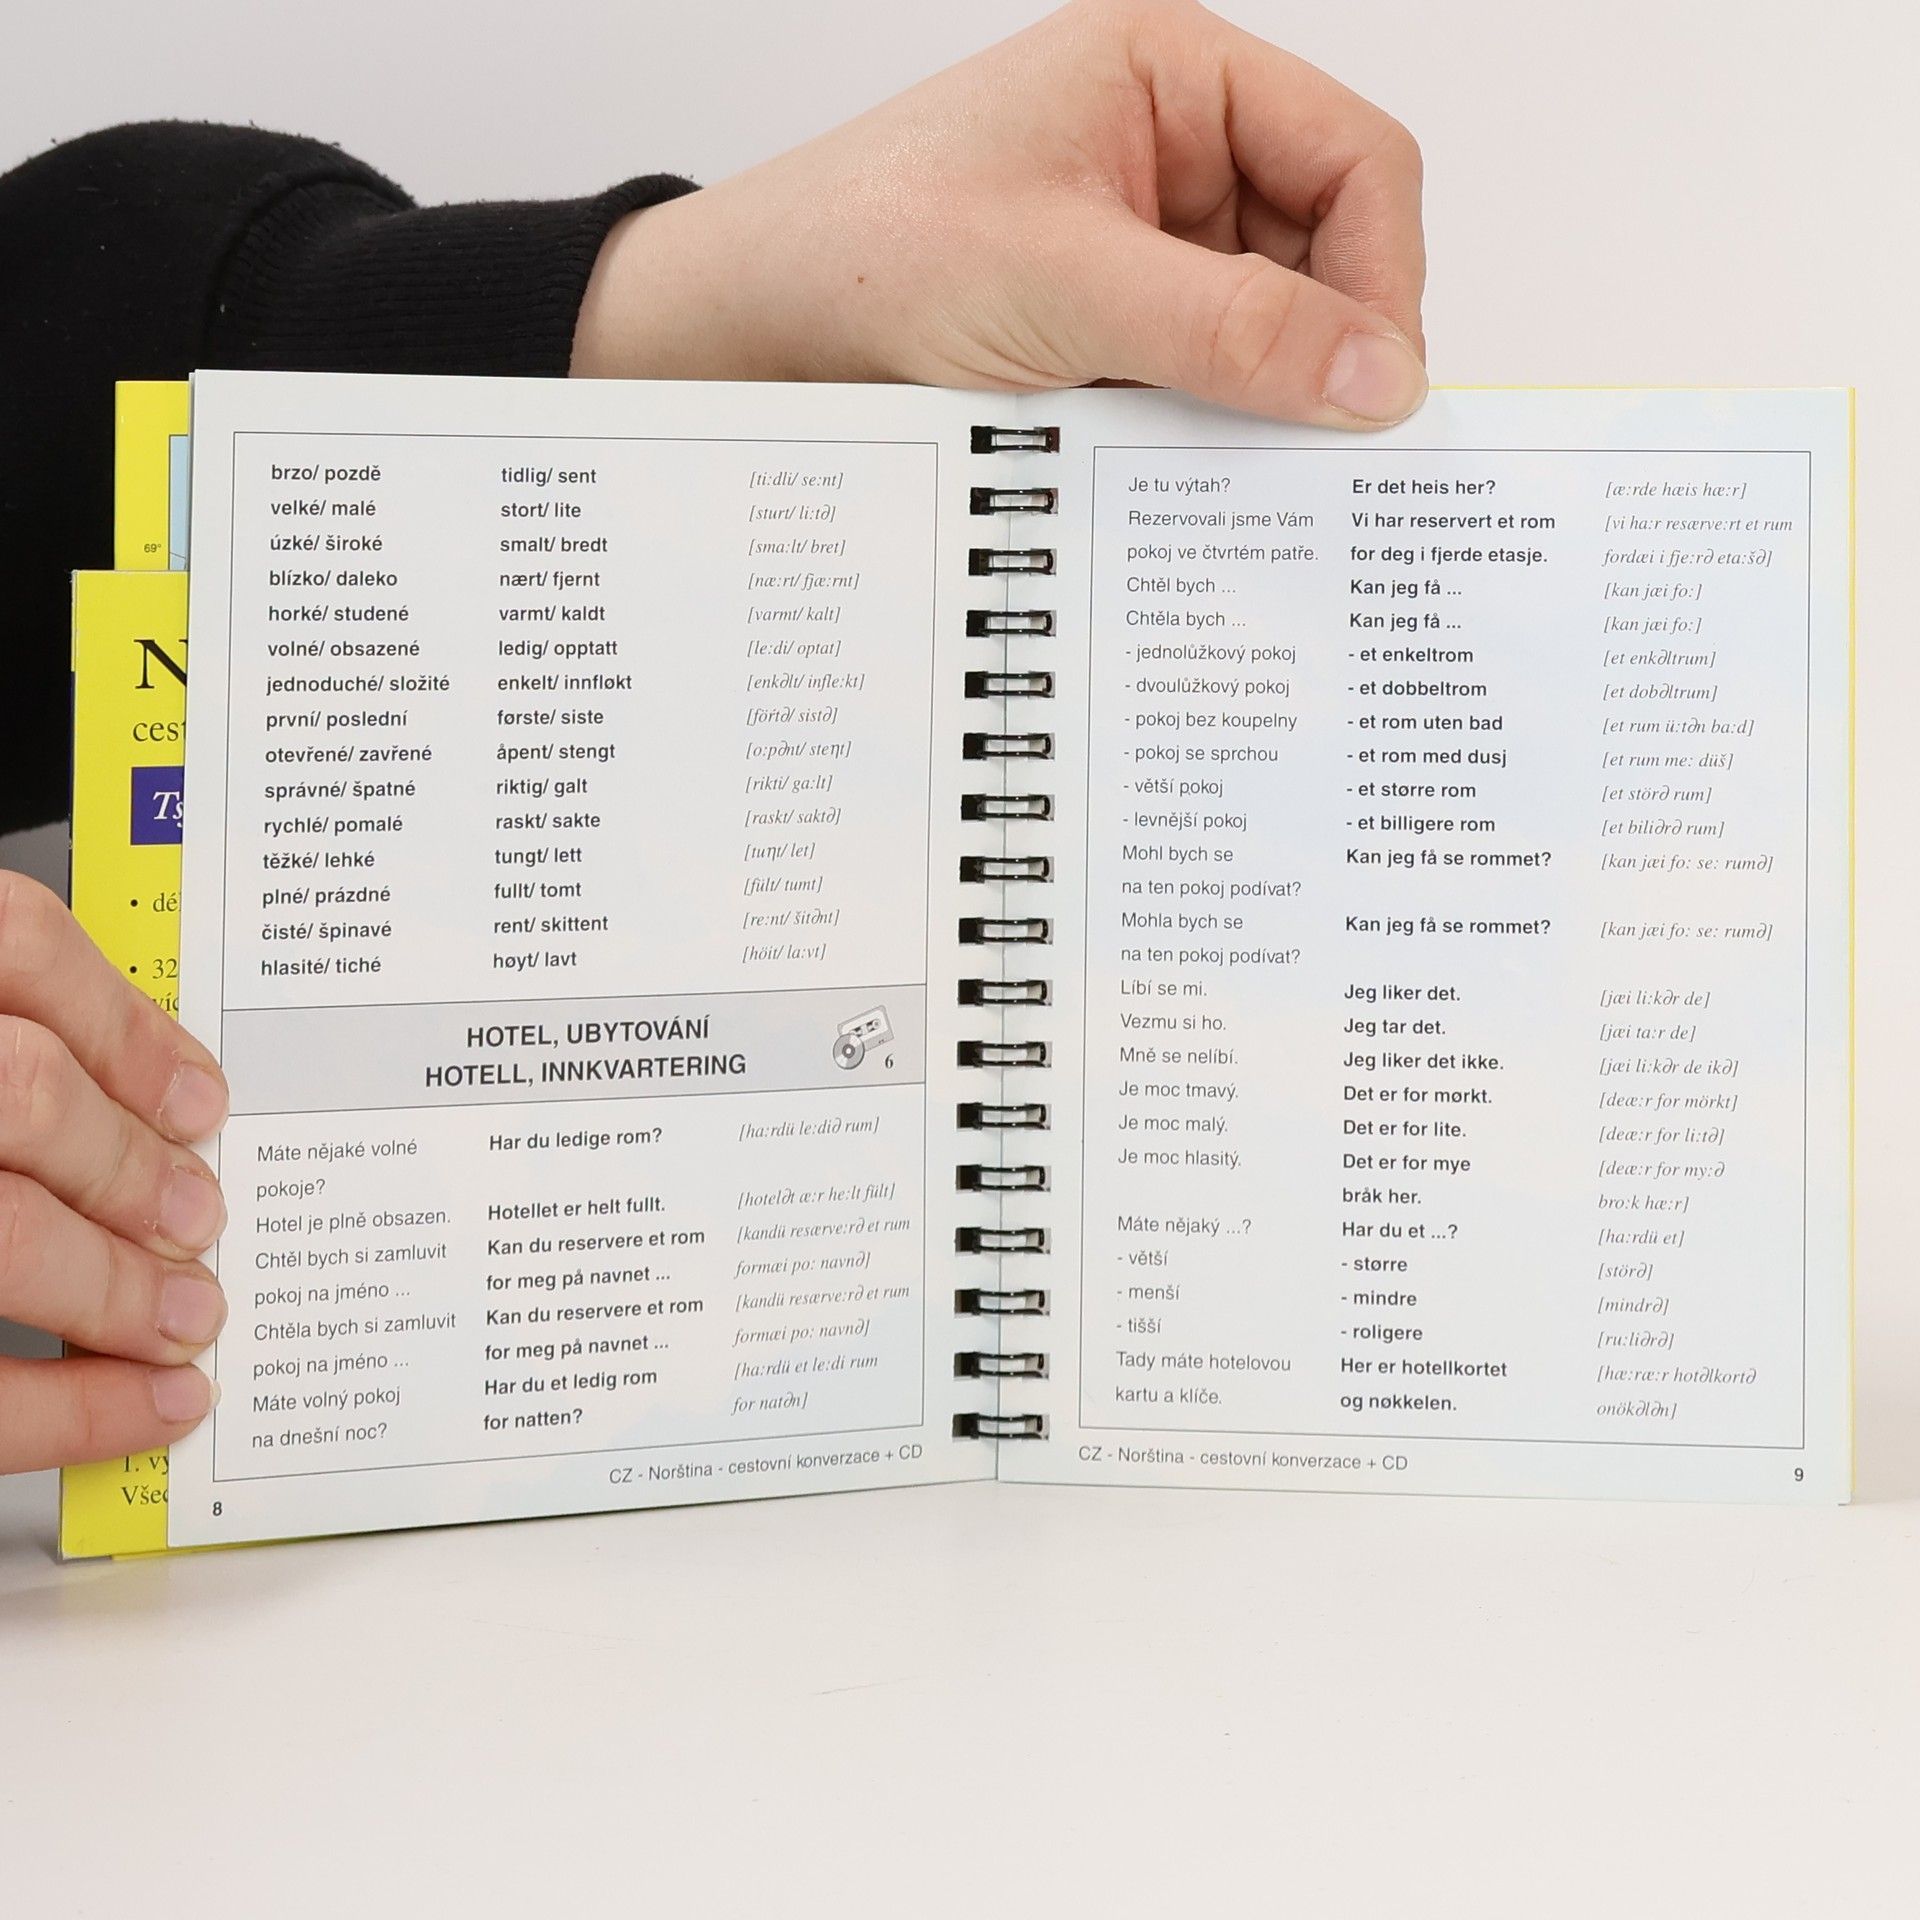 69°
N
cest
Ts
• dé
• 32
1. vy
Všec
brzo/ pozdě tidlig/ sent [ti:dli/ se:nt]
velké/ malé stort/ lite [sturt/ li:t∂]
úzké/ široké smalt/ bredt [sma:lt/ bret]
blízko/ daleko nært/ fjernt [næ:rt/ fjæ:rnt]
horké/ studené varmt/ kaldt [varmt/ kalt]
volné/ obsazené ledig/ opptatt [le:di/ optat]
jednoduché/ složité enkelt/ innfløkt [enk∂lt/ infle:kt]
první/ poslední første/ siste [föŕt∂/ sist∂]
otevřené/ zavřené åpent/ stengt [o:p∂nt/ steηt]
správné/ špatné riktig/ galt [rikti/ ga:lt]
rychlé/ pomalé raskt/ sakte [raskt/ sakt∂]
těžké/ lehké tungt/ lett [tuηt/ let]
plné/ prázdné fullt/ tomt [fült/ tumt]
čisté/ špinavé rent/ skittent [re:nt/ šit∂nt]
hlasité/ tiché høyt/ lavt [höit/ la:vt]
HOTEL, UBYTOVÁNÍ
HOTELL, INNKVARTERING
6
Máte nějaké volné Har du ledige rom? [ha:rdü le:di∂ rum]
pokoje?
Hotel je plně obsazen. Hotellet er helt fullt. [hotel∂t æ:r he:lt fült]
Chtěl bych si zamluvit Kan du reservere et rom [kandü resærve:r∂ et rum
pokoj na jméno ... for meg på navnet ... formæi po: navn∂]
Chtěla bych si zamluvit Kan du reservere et rom [kandü resærve:r∂ et rum
pokoj na jméno ... for meg på navnet ... formæi po: navn∂]
Máte volný pokoj Har du et ledig rom [ha:rdü et le:di rum
na dnešní noc? for natten? for nat∂n]
CZ - Norština - cestovní konverzace + CD
8
Je tu výtah? Er det heis her? [æ:rde hæis hæ:r]
Rezervovali jsme Vám Vi har reservert et rom [vi ha:r resærve:rt et rum
pokoj ve čtvrtém patře. for deg i fjerde etasje. fordæi i fje:r∂ eta:š∂]
Chtěl bych ... Kan jeg få ... [kan jæi fo:]
Chtěla bych ... Kan jeg få ... [kan jæi fo:]
- jednolůžkový pokoj - et enkeltrom [et enk∂ltrum]
- dvoulůžkový pokoj - et dobbeltrom [et dob∂ltrum]
- pokoj bez koupelny - et rom uten bad [et rum ü:t∂n ba:d]
- pokoj se sprchou - et rom med dusj [et rum me: düš]
- větší pokoj - et større rom [et stör∂ rum]
- levnější pokoj - et billigere rom [et bili∂r∂ rum]
Mohl bych se Kan jeg få se rommet? [kan jæi fo: se: rum∂]
na ten pokoj podívat?
Mohla bych se Kan jeg få se rommet? [kan jæi fo: se: rum∂]
na ten pokoj podívat?
Líbí se mi. Jeg liker det. [jæi li:k∂r de]
Vezmu si ho. Jeg tar det. [jæi ta:r de]
Mně se nelíbí. Jeg liker det ikke. [jæi li:k∂r de ik∂]
Je moc tmavý. Det er for mørkt. [deæ:r for mörkt]
Je moc malý. Det er for lite. [deæ:r for li:t∂]
Je moc hlasitý. Det er for mye [deæ:r for my:∂
bråk her. bro:k hæ:r]
Máte nějaký ...? Har du et ...? [ha:rdü et]
- větší - større [stör∂]
- menší - mindre [mindr∂]
- tišší - roligere [ru:li∂r∂]
Tady máte hotelovou Her er hotellkortet [hæ:ræ:r hot∂lkort∂
kartu a klíče. og nøkkelen. onök∂l∂n]
CZ - Norština - cestovní konverzace + CD
9